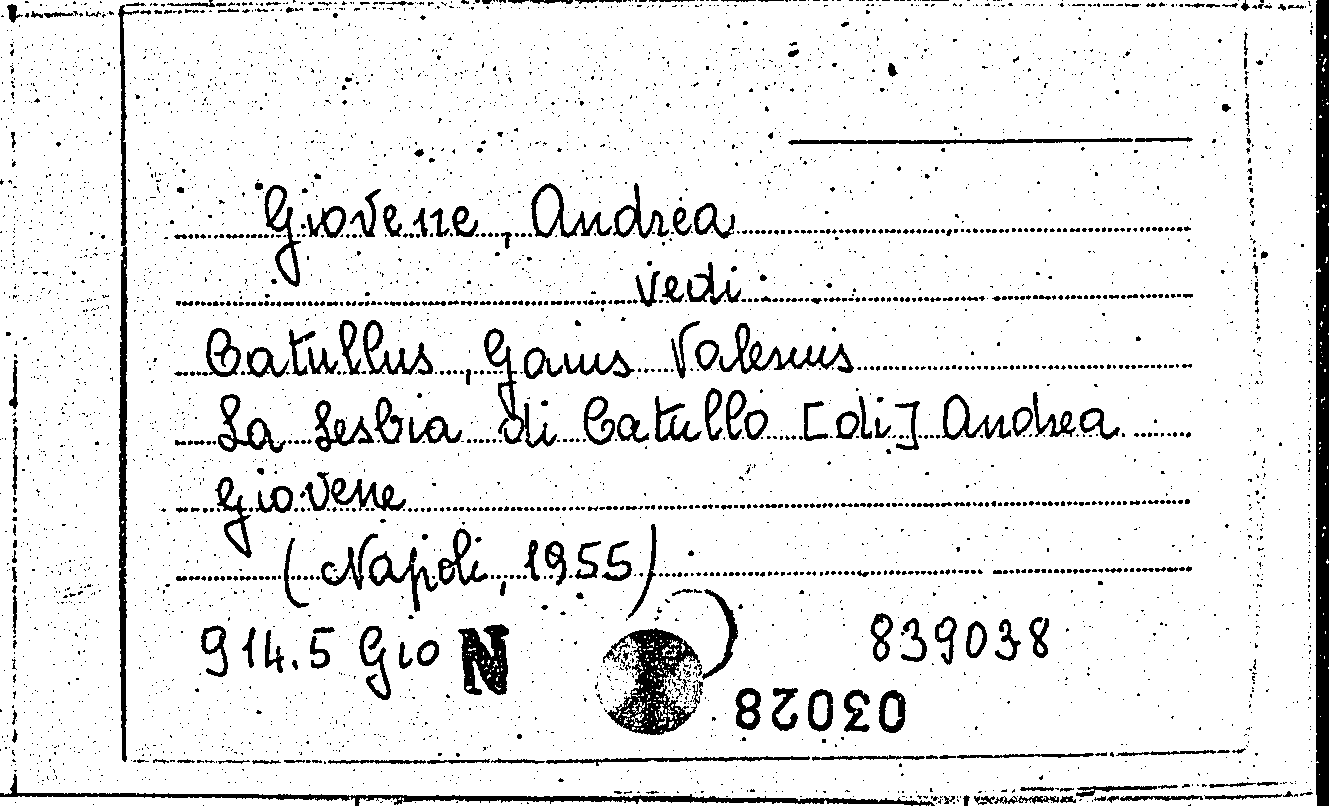 Giovene, Andrea
vedi
Catullus, Gaius Valerius
La Lesbia di Catullo [di] Andrea
Giovene
(Napoli, 1955)
914.5 Gio N 839038
03028